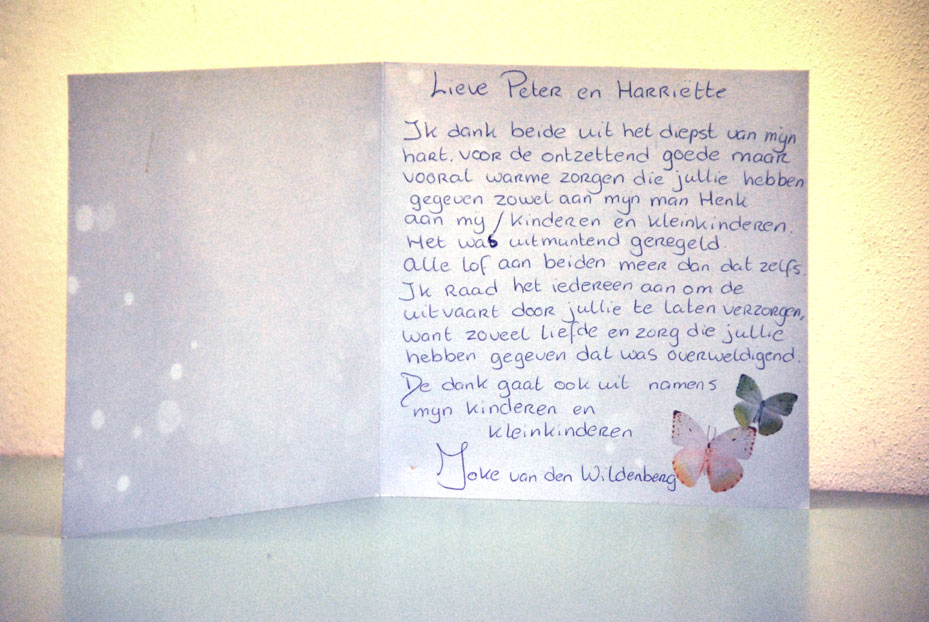 Lieve Peter en Harriëtte
Ik dank beide uit het diepst van mijn
hart. voor de ontzettend goede maar
vooral warme zorgen die jullie hebben
gegeven zowel aan mijn man Henk
aan my / kinderen en kleinkinderen.
Het was uitmuntend geregeld.
Alle lof aan beiden meer dan dat zelfs.
Ik raad het iedereen aan om de
uitvaart door jullie te laten verzorgen,
want zoveel liefde en zorg die jullie
hebben gegeven dat was overweldigend.
De dank gaat ook uit namens
mijn kinderen en
kleinkinderen
Joke van den Wildenberg